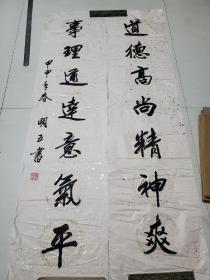 道德高尚精神爽
事理通達意氣平
甲申年春 明玉書